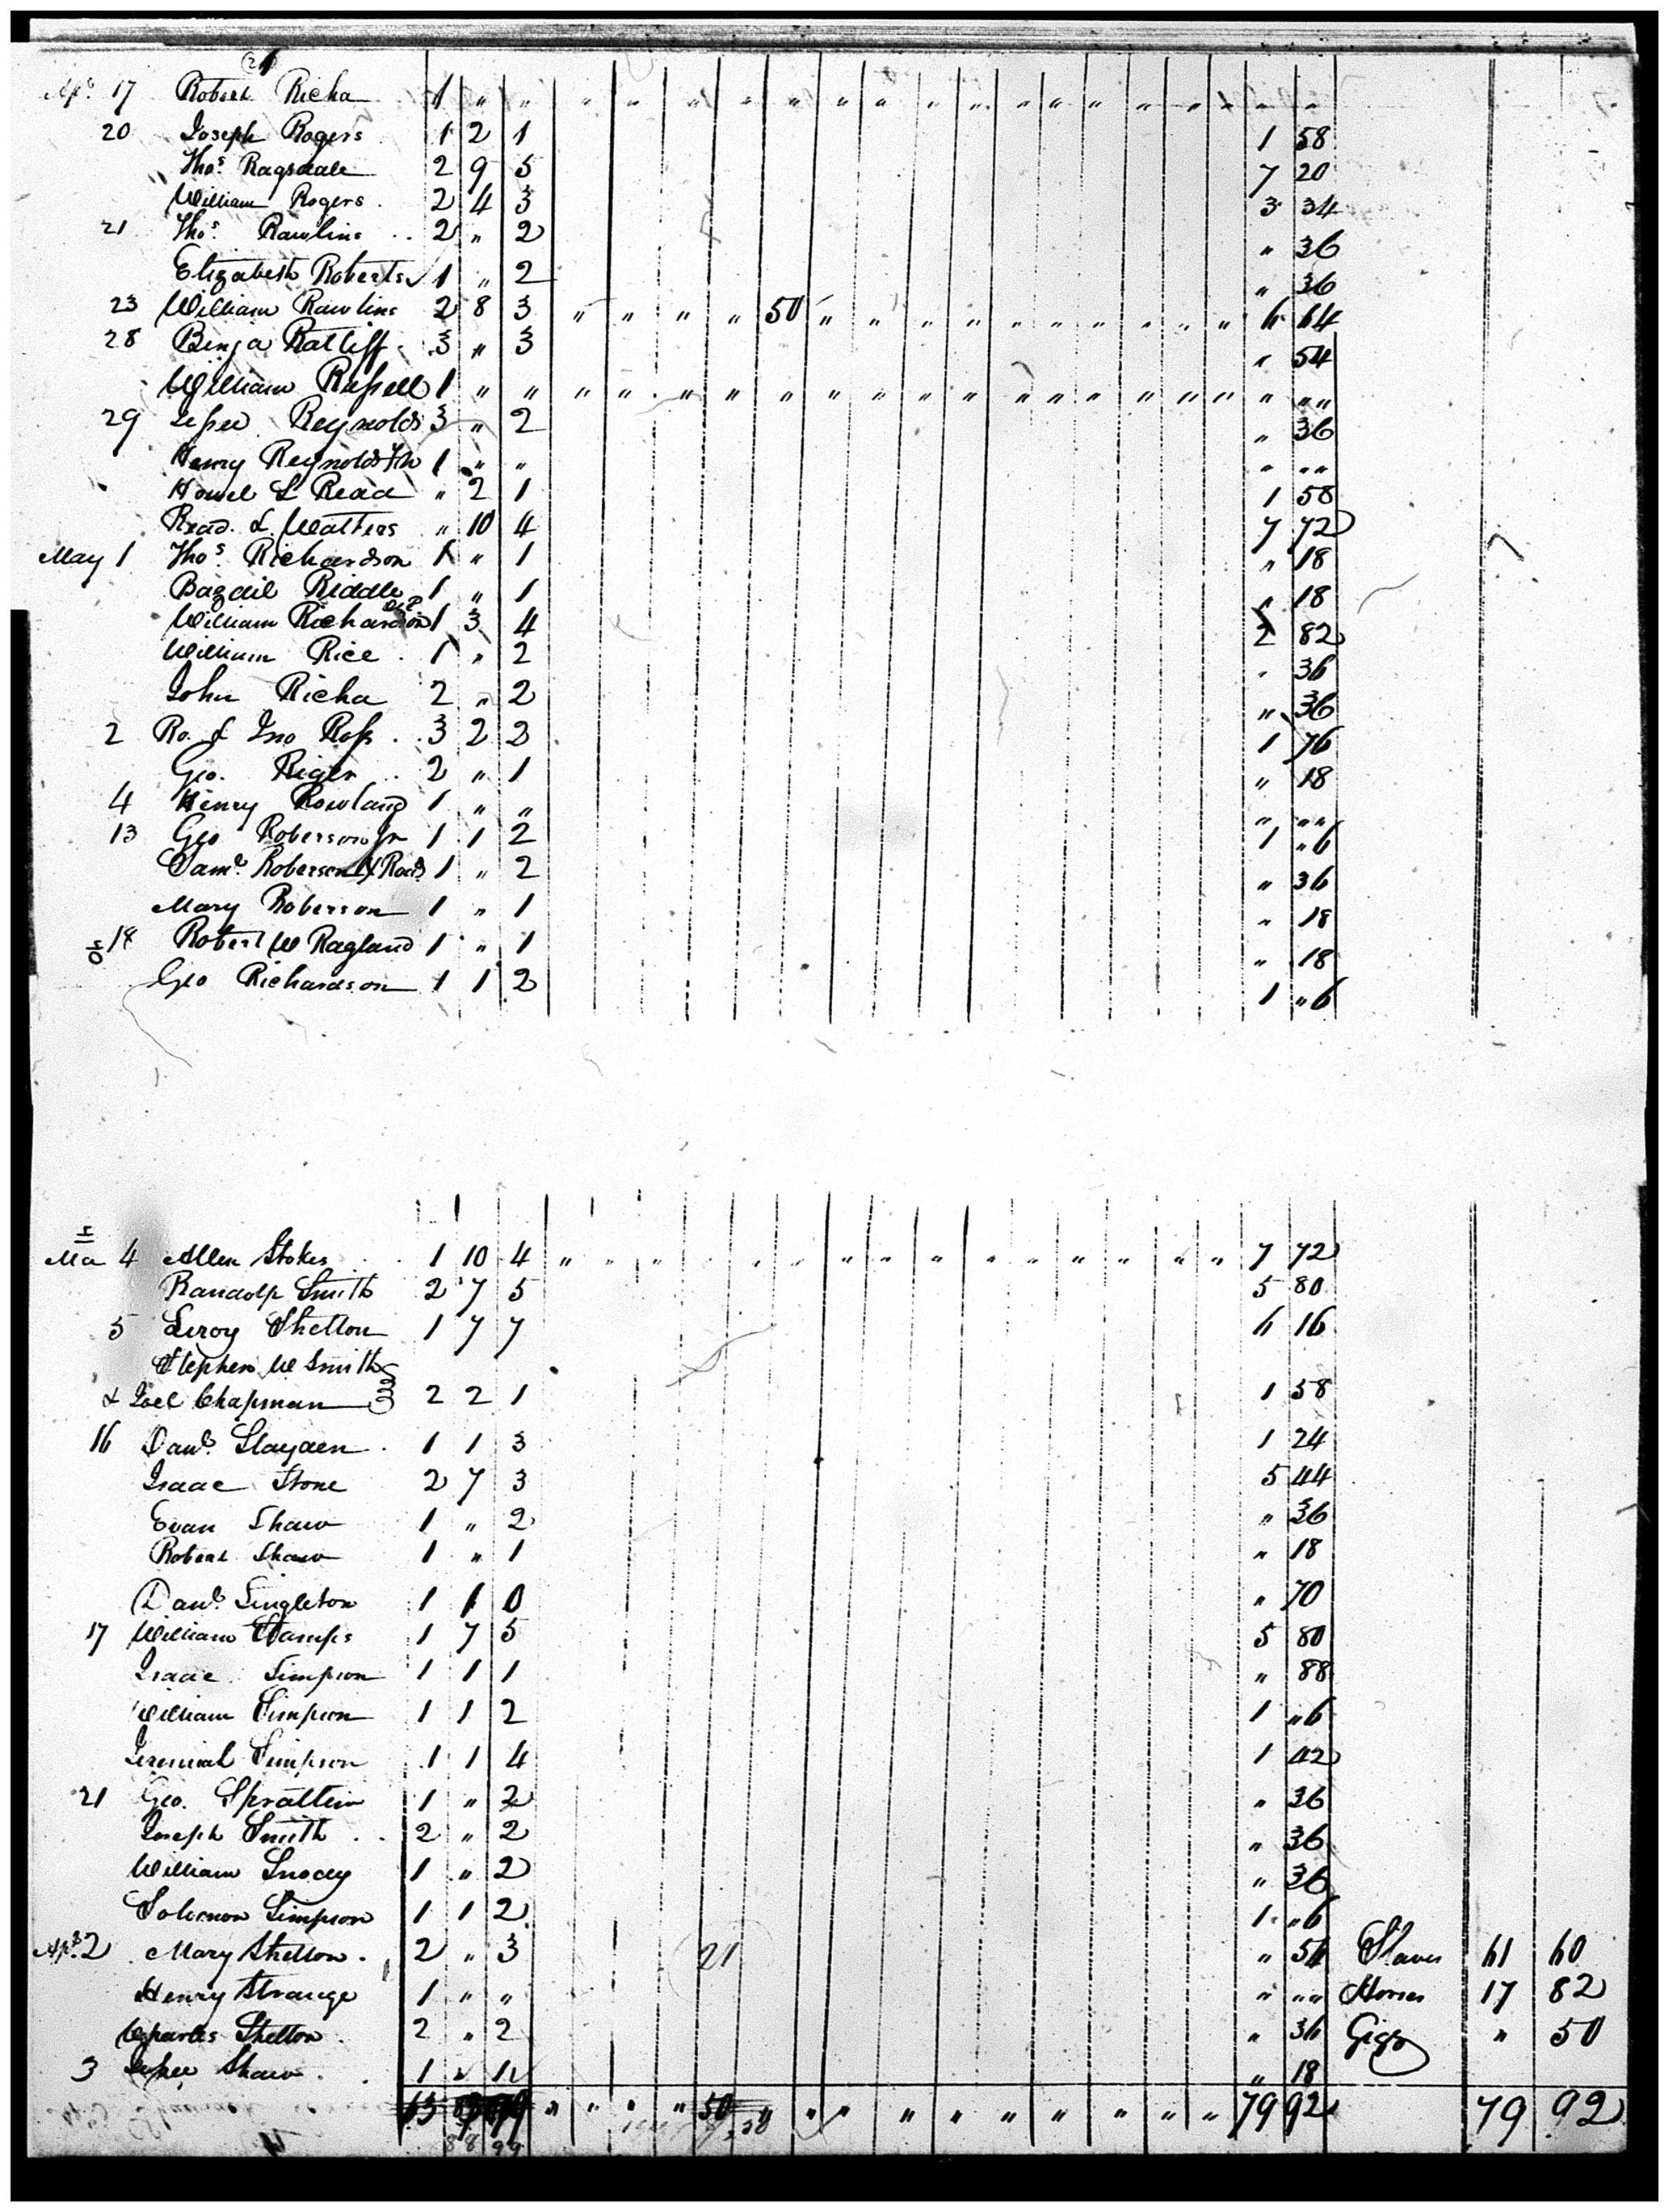 21
Ap.l 17 Robert Richa 1 " " " " " " " " " " " " " " " " " " "
20 Joseph Rogers 1 2 1 1 58
Thos. Ragsdale 2 9 5 7 20
William Rogers 2 4 3 3 34
21 Thos. Rawlins 2 " 2 " 36
Elizabeth Roberts 1 " 2 " 36
23 William Rawlins 2 8 3 " " " " 50 " " " " " " " " " 6 64
28 Benja Ratliff 3 " 3 " 54
William Russell 1 " " " " " " " " " " " " " " " " " " " "
29 Jesse Reynolds 3 " 2 " 36
Henry Reynolds 1 " " " " "
Howel L Read " 2 1 1 58
Read & Watters " 10 4 7 72
May 1 Thos. Richardson 1 " 1 " 18
Bazdil Riddle 1 " 1 " 18
William Richardson 1 3 4 2 82
William Rice 1 " 2 " 36
John Richa 2 " 2 " 36
2 Ro. & Jno Ross 3 2 2 1 76
Geo. Riger 2 " 1 " 18
4 Henry Rowland 1 " " " " "
13 Geo Roberson Jr 1 1 2 1 " 6
Saml. Roberson X Road 1 " 2 " 36
Mary Roberson 1 " 1 " 18
18 Robert W Ragland 1 " 1 " 18
Geo Richardson 1 1 2 1 " 6
Mar 4 Allen Stokes 1 10 4 " " " " " " " " " " " " " 7 72
Randolp Smith 2 7 5 5 80
5 Leroy Shelton 1 7 7 6 16
Stephen W Smith
& Joel Chapman 2 2 1 1 58
16 Danl. Slayden 1 1 3 1 24
Isaac Stone 2 7 3 5 44
Evan Shaw 1 " 2 " 36
Robert Shaw 1 " 1 " 18
Danl. Singleton 1 1 0 " 70
17 William Stamps 1 7 5 5 80
Isaac Simpson 1 1 1 " 88
William Simpson 1 1 2 1 " 6
Jeremiah Simpson 1 1 4 1 42
21 Geo. Sprattin 1 " 2 " 36
Joseph Smith 2 " 2 " 36
William Snody 1 " 2 " 36
Solomon Simpson 1 1 2 1 " 6
Ap.l 2 Mary Shelton 2 " 3 21 " 54 Slaves 61 60
Henry Strange 1 " " " " " Horses 17 82
Charles Shelton 2 " 2 " 36 Gigs " 50
3 Jesse Shaw 1 " 1 " 18
" " " " 50 " " " " " " " " " " 79 92 79 92
88 99